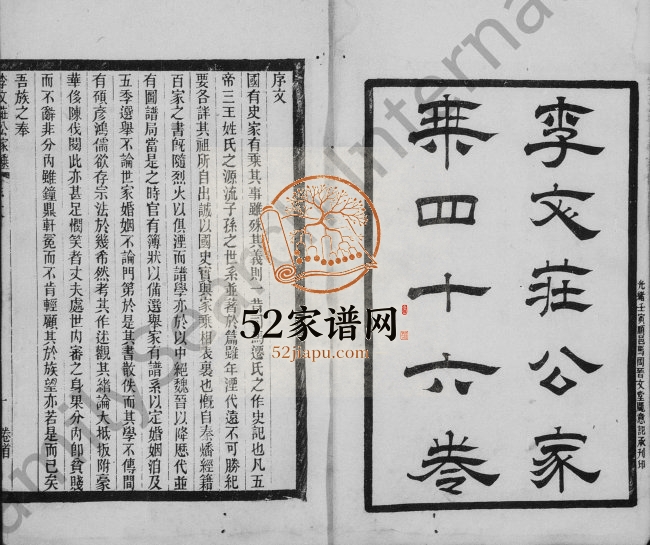 李文莊公家
乘四十六卷
光緒壬寅順邑馬岡晉文堂鳳意記承刊印
序文
國有史家有乘其事雖殊其義則一昔司馬遷氏之作史記也凡五
帝三王姓氏之源流子孫之世系並著於篇雖年湮代遠不可勝紀
要各詳其祖所自出誠以國史實與家乘相表裏也慨自秦燔經籍
百家之書旣隨烈火以俱湮而譜學亦於以中絕魏晉以降厯代並
有圖譜局當是之時官有簿狀以備選舉家有譜系以定婚姻洎及
五季選舉不論世家婚姻不論門第於是其書散佚而其學不傳間
有碩彥鴻儒欲存宗法於幾希然考其作述觀其緒論大抵扳附豪
華侈陳伐閱此亦甚足憫笑者丈夫處世內審之身果分內卽貧賤
而不辭非分內雖鐘鼎軒冕而不肯輕顧其於族望亦若是而已矣
吾族之奉
李文莊公家乘
卷首
52家谱网
52jiapu.com
FamilySearch International